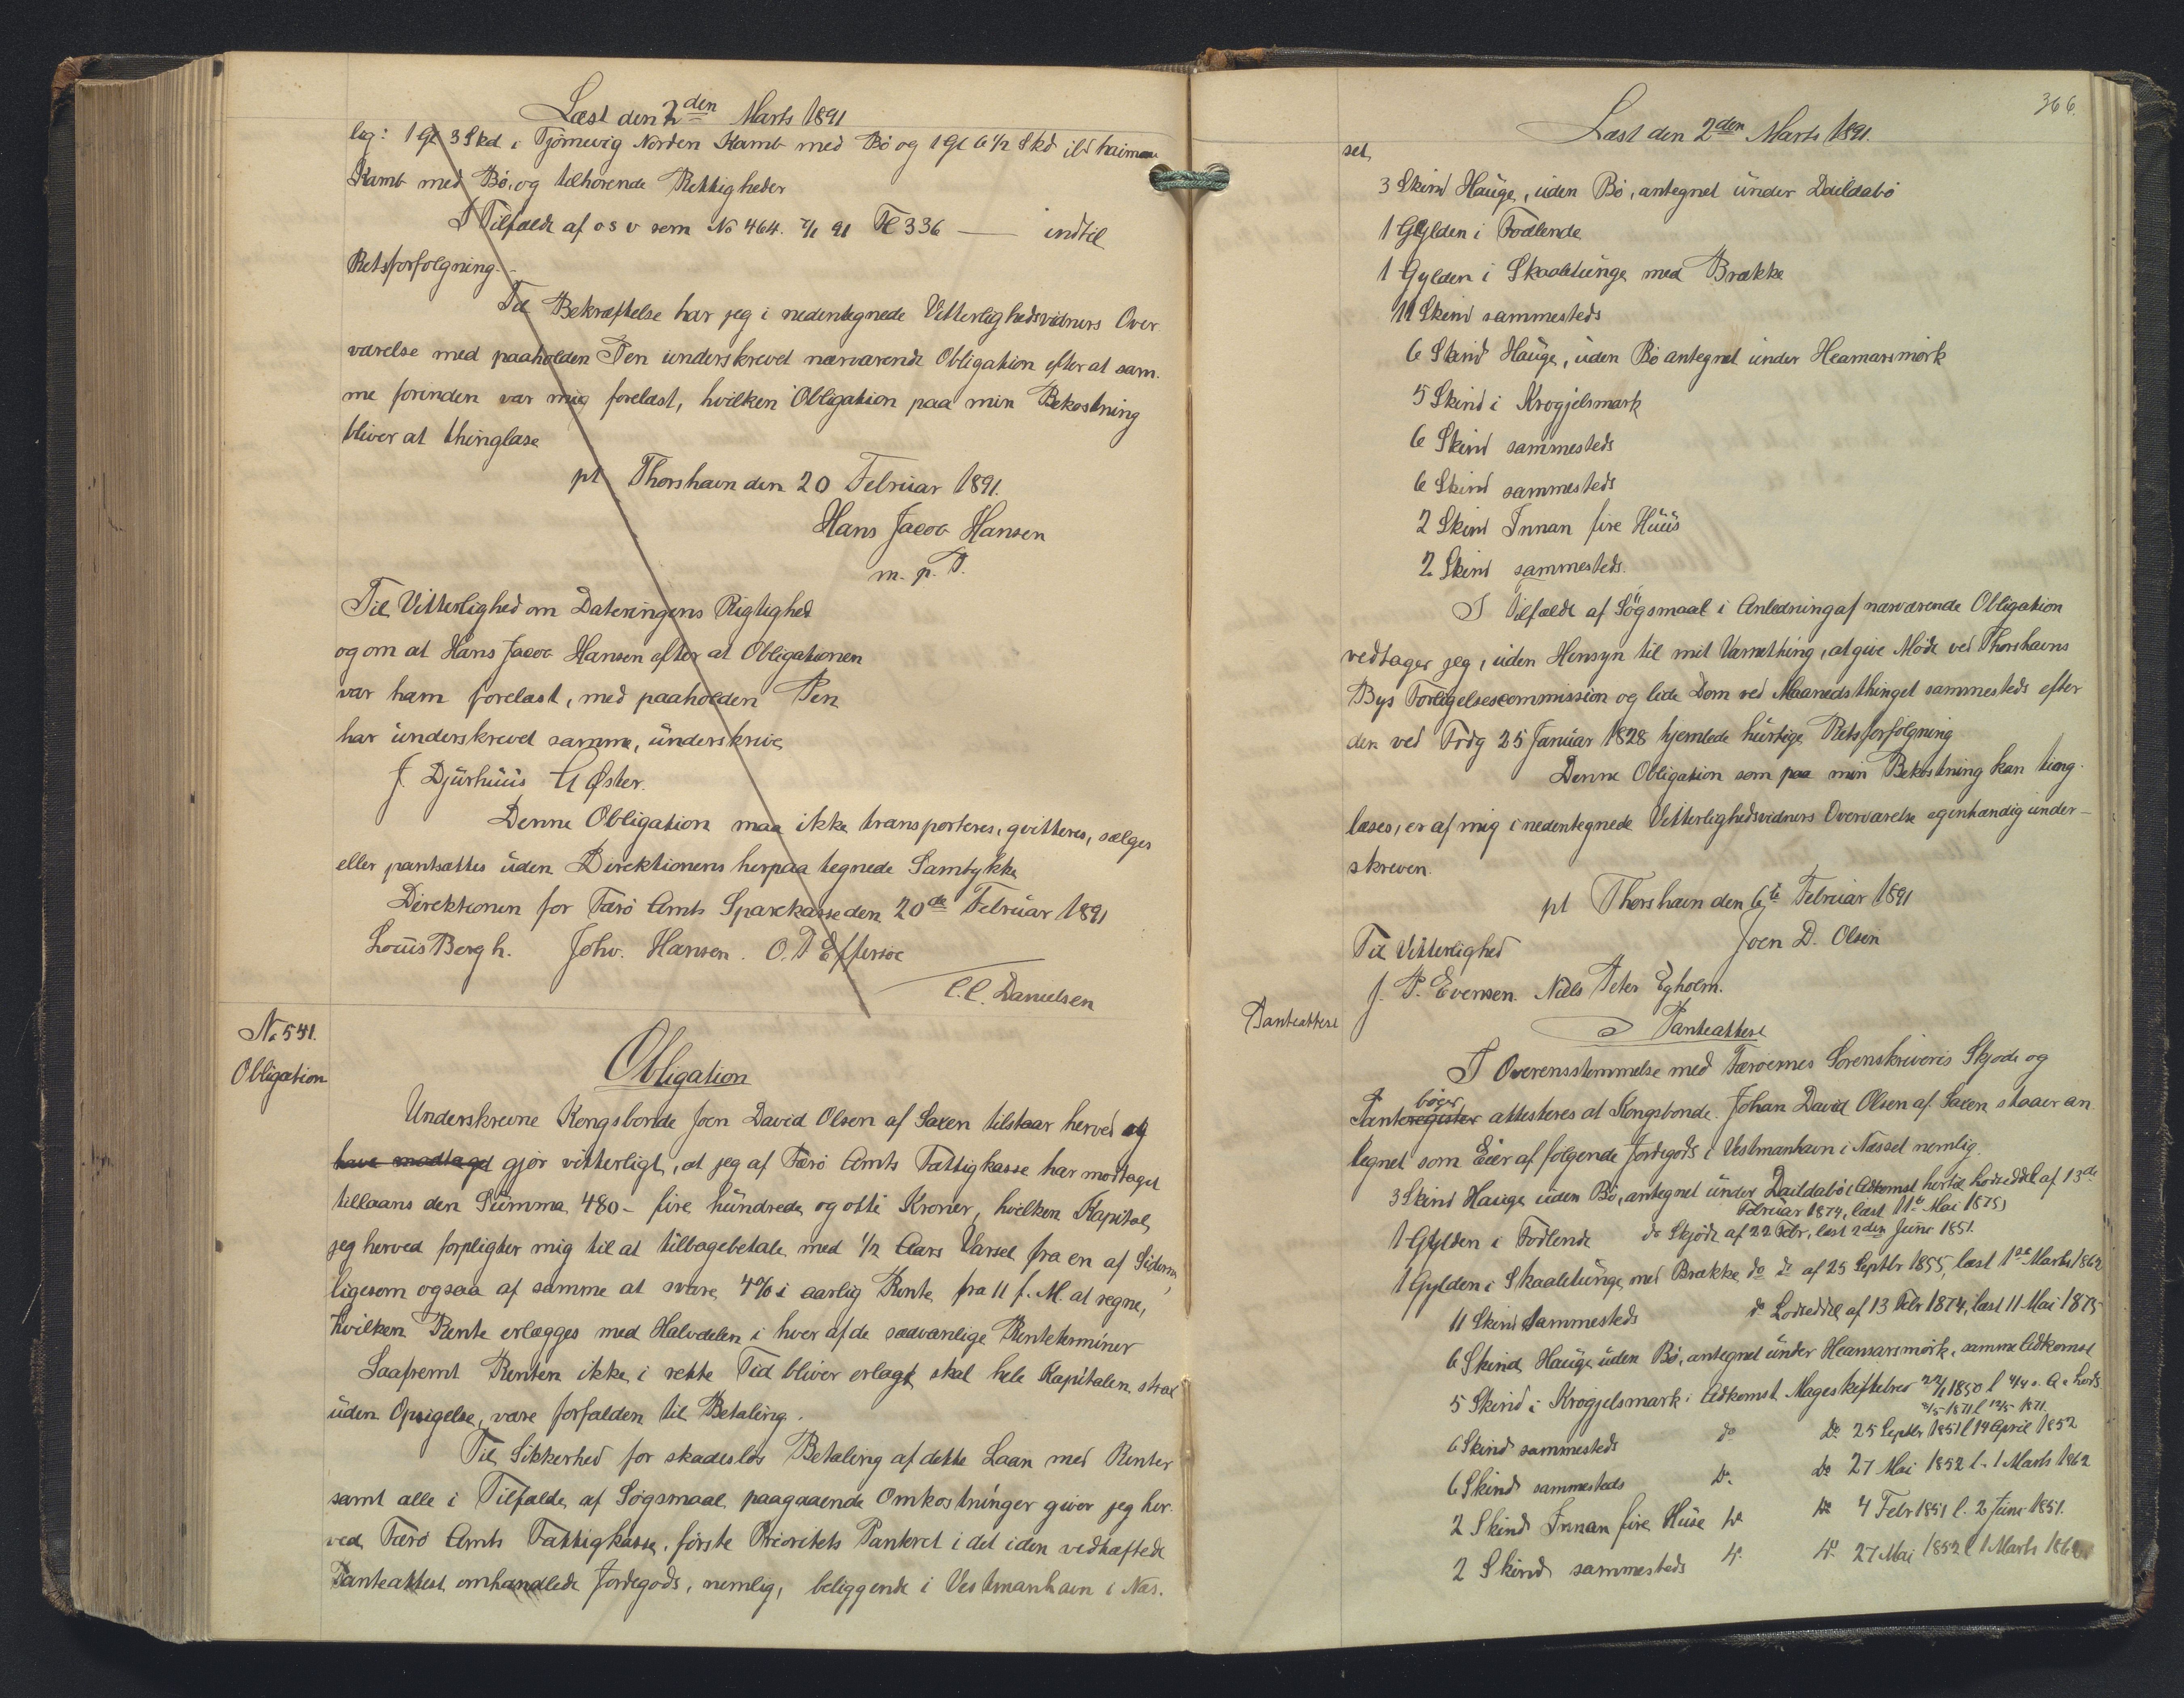 Læst den 2den Marts 1891
lig: 1 Gl 3 Skd i Tjørnevig Norden Kamb med Bø og 1 Gl 6 1/2 Skd
Kamb med Bø, og tilhørende Rettigheder
I Tilfælde af o s v som No 464. 7/1 91 Fl 336 — indtil
Retsforfølgning.
Til Bekræftelse har jeg i nedentegnede Vitterlighedsvidners Over
værelse med paaholden Pen underskrevet nærværende Obligation efter at sam
me forinden var mig forelæst, hvilken Obligation paa min Bekostning
bliver at thinglæse
pt Thorshavn den 20 Februar 1891.
Hans Jacob Hansen
m. p. P.
Til Vitterlighed om Dateringens Rigtighed
og om at Hans Jacob Hansen efter at Obligationen
var ham forelæst, med paaholden Pen
har underskrevet samme, underskrive
J. Djurhuus H Øster.
Denne Obligation maa ikke transporteres, qvitteres, sælges
eller pantsættes uden Direktionens herpaa tegnede Samtykke
Direktionen for Færø Amts Sparekasse den 20de Februar 1891
Louis Bergh. Johv. Hansen. O. P Effersøe
C. C. Danielsen
No 541.
Obligation
Obligation
Underskrevne Kongsbonde Joen David Olsen af Saxen tilstaar herved og
have modtaget gjør vitterligt, at jeg af Færø Amts Fattigkasse har modtaget
tillaans den Summa 480 - fire hundrede og otti Kroner, hvilken Kapital
jeg herved forpligter mig til at tilbagebetale med 1/2 Aars Varsel fra en af Siderne
ligesom ogsaa af samme at svare 4% i aarlig Rente fra 11 f. M. at regne,
hvilken Rente erlægges med Halvdelen i hver af de sædvanlige Renteterminer
Saafremt Renten ikke i rette Tid bliver erlagt skal hele Kapitalen strax
uden Opsigelse, være forfalden til Betaling.
Til Sikkerhed for skadesløs Betaling af dette Laan med Renter
samt alle i Tilfælde af Søgsmaal paagaaende Omkostninger giver jeg her
ved Færø Amts Fattigkasse, første Prioritets Panteret i det i den vedhæftede
Panteattest omhandlede Jordegods, nemlig, beliggende i Vestmanhavn i Næs.
366.
Læst den 2den Marts 1891.
set
3 Skind Hauge, uden Bø, antegnet under Daildabø
1 Gylden i Fodlende
1 Gylden i Skaaletunge med Brække
11 Skind sammesteds
6 Skind Hauge, uden Bø antegnet under Heamarsmørk
5 Skind i Krogjelsmark
6 Skind sammesteds
6 Skind sammesteds
2 Skind Innan fire Huus
2 Skind sammesteds.
I Tilfælde af Søgsmaal i Anledning af nærværende Obligation
vedtager jeg, uden Hensyn til mit Værnething, at give Møde ved Thorshavns
Bys Forligelsescommission og lide Dom ved Maanedsthinget sammesteds efter
den ved Frdg 25 Januar 1828 hjemlede hurtige Retsforfølgning
Denne Obligation som paa min Bekostning kan ting
læses, er af mig i nedentegnede Vitterlighedsvidners Overværelse egenhændig under-
skreven.
pt Thorshavn den 6te Februar 1891
Til Vitterlighed Joen D. Olsen
J. P. Evensen. Niels Peter Egholm.
Panteattest
Panteattest
I Overensstemmelse med Færøernes Sorenskriveris Skjøde og
bøger
Panteregister attesteres at Kongsbonde. Johan David Olsen af Saxen staaer an
tegnet som Eier af følgende Jordegods i Vestmanhavn i Næsset nemlig.
3 Skind Hauge uden Bø, antegnet under Daildabø (Adkomst hertil Lodseddel af 13de
Februar 1874, læst 11te Mai 1875)
1 Gylden i Fodlende do Skjøde af 22 Febr, læst 2den Juni 1851.
1 Gylden i Skaaletunge med Brække do do af 25 Septbr 1855, læst 1ste Marts 1862
11 Skind Sammesteds do Lodseddel af 13 Febr 1874, læst 11 Mai 1875
6 Skind Hauge uden Bø, antegnet under Heamarsmørk, samme Adkomst
5 Skind i Krogjelsmark: Adkomst Mageskiftebrev 22/1 1850 l 4/4 s. A & Lods
1871 l 12/5 1871.
6 Skind sammesteds do do 25 Septbr 1851 l 19 April 1852
6 Skind sammesteds do do 27 Mai 1852 l. 1 Marts 1862
2 Skind Innan fire Huse do do 4 Febr 1851 l. 2 Juni 1851.
2 Skind sammesteds do do 27 Mai 1852 l 1 Marts 1862